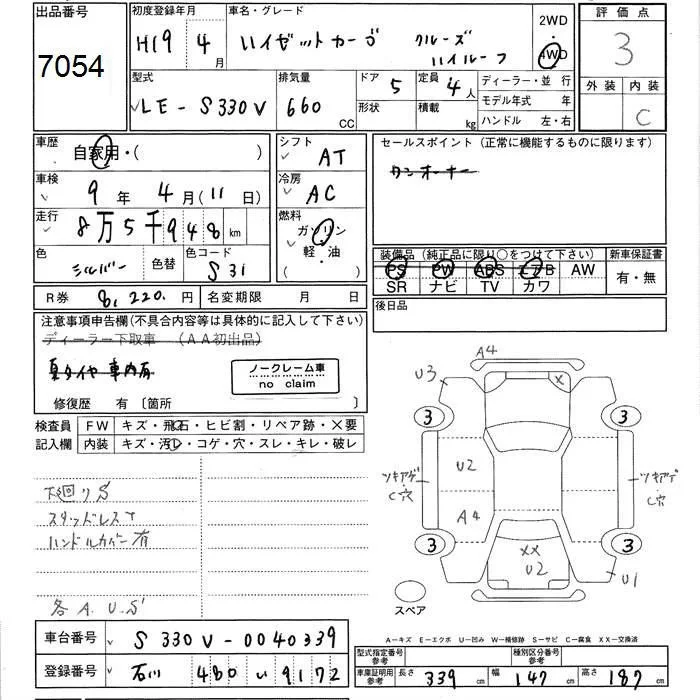 出品番号
7054
初度登録年月
H19 4月
車名・グレード
ハイゼットカーゴ クルーズ ハイルーフ
2WD
4WD
評価点
3
外装 内装
C
型式
LE-S330V
排気量
660 CC
ドア
5
形状
定員
4人
積載 kg
ディーラー・並行
モデル年式 年
ハンドル 左・右
車歴
自家用・( )
シフト
AT
セールスポイント (正常に機能するものに限ります)
ワンオーナー
車検
9年 4月(11日)
冷房
AC
走行
8万5千948km
燃料
ガソリン
軽・油
( )
色
シルバー
色替
色コード
S31
装備品 (純正品に限り○をつけて下さい)
新車保証書
PS PW ABS エアB AW
SR ナビ TV カワ
有・無
R券 8,220.円
名変期限 月 日
後日品
注意事項申告欄(不具合内容等は具体的に記入して下さい)
ディーラー下取車 (AA初出品)
夏タイヤ車内有
ノークレーム車
no claim
修復歴 有〔箇所 〕
検査員
記入欄
FW キズ・飛石・ヒビ割・リペア跡・×要
内装 キズ・汚レ・コゲ・穴・スレ・キレ・破レ
下廻りS
スタッドレス
ハンドルカバー有
各A.U.S
A4
U3
X
3
3
U2
A4
ツキアゲ
C穴
ツキアゲ
C穴
3
3
XX
U2
U1
スペア
A−キズ E−エクボ U−凹み W−補修跡 S−サビ C−腐食 XX−交換済
車台番号
S330V-0040339
型式指定番号
参考
種別区分番号
参考
登録番号
石川 480 い 9172
車庫証明用
参考
長さ 339cm
幅 147cm
高さ 187cm